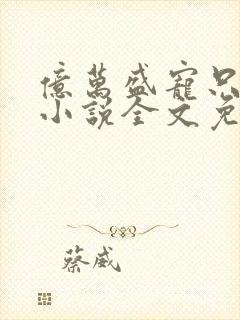 億萬盛寵只
小說全文免
蔡威